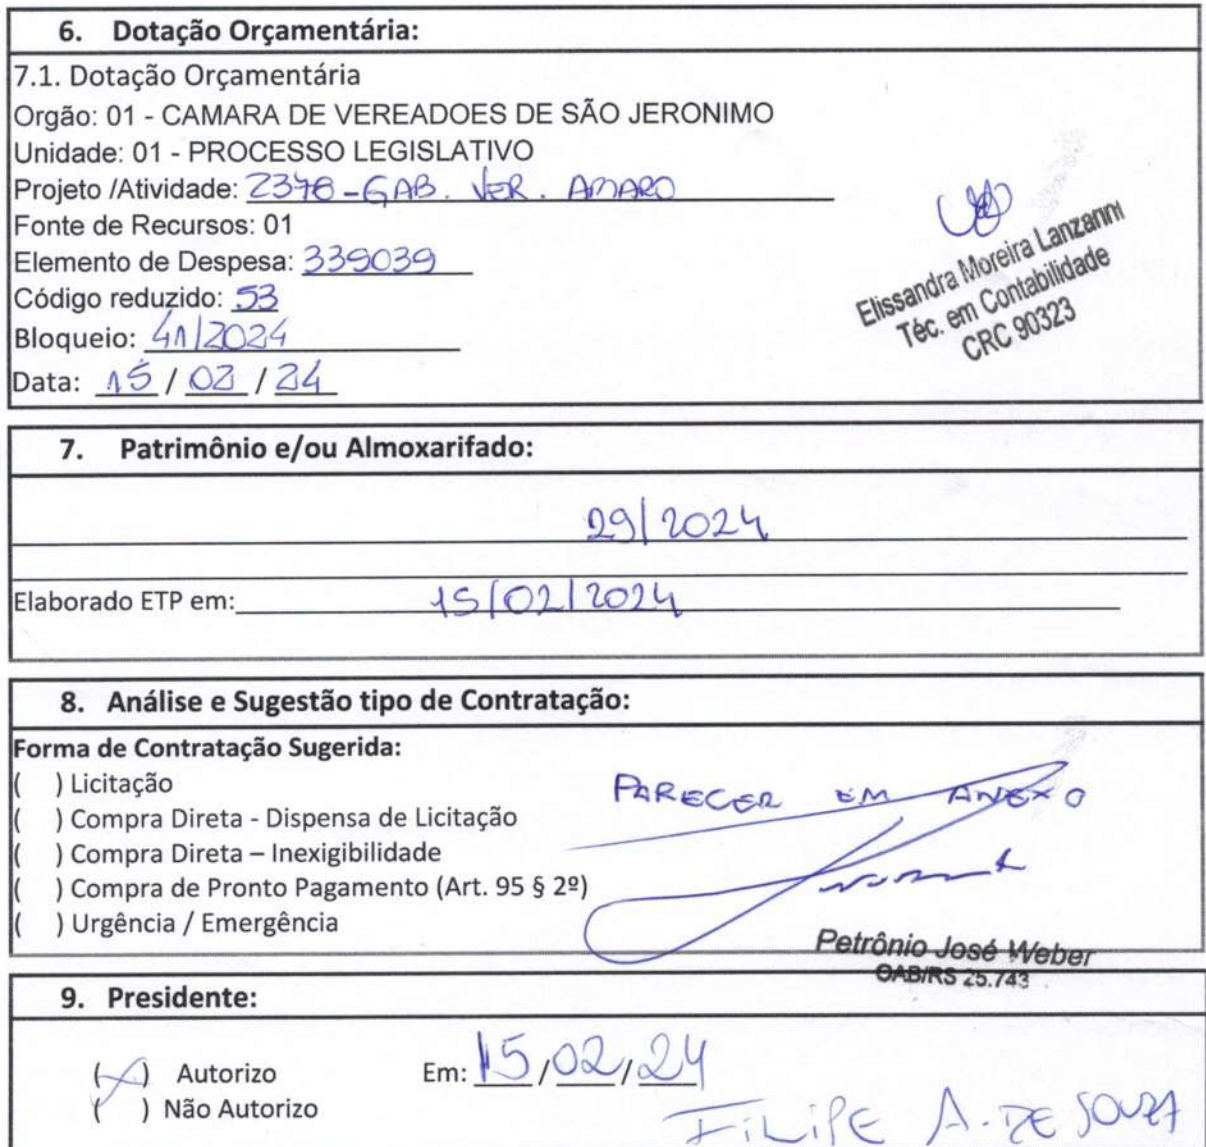 6. Dotação Orçamentária:
7.1. Dotação Orçamentária
Orgão: 01 - CAMARA DE VEREADOES DE SÃO JERONIMO
Unidade: 01 - PROCESSO LEGISLATIVO
Projeto /Atividade: 2378-GAB. VER. AMARO
Fonte de Recursos: 01
Elemento de Despesa: 339039
Código reduzido: 53
Bloqueio: 41/2024
Data: 15 / 02 / 24
Elissandra Moreira Lanzanni
Téc. em Contabilidade
CRC 90323
7. Patrimônio e/ou Almoxarifado:
29/2024
Elaborado ETP em: 15/02/2024
8. Análise e Sugestão tipo de Contratação:
Forma de Contratação Sugerida:
( ) Licitação
( ) Compra Direta - Dispensa de Licitação
( ) Compra Direta – Inexigibilidade
( ) Compra de Pronto Pagamento (Art. 95 § 2º)
( ) Urgência / Emergência
PARECER EM ANEXO
Petrônio José Weber
OAB/RS 25.743
9. Presidente:
(X) Autorizo Em: 15/02/24
( ) Não Autorizo
FILIPE A. DE SOUZA